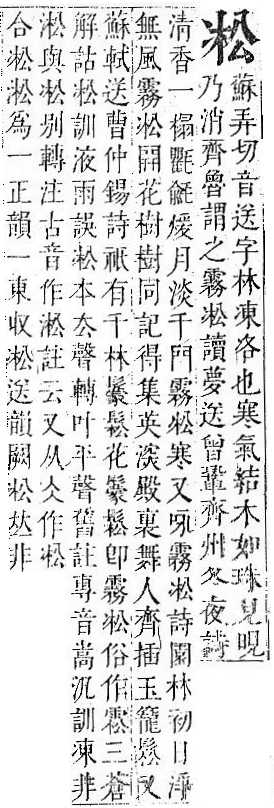 凇
蘇弄切音送字林凍洛也寒氣結木如珠見晛
乃消齊魯謂之霧凇讀夢送曾鞏齊州冬夜詩
清香一榻氍毹煖月淡千門霧凇寒又咏霧凇詩園林初日淨
無風霧凇開花樹樹同記得集英深殿裏舞人齊插玉籠鬆又
蘇軾送曹仲錫詩祇有千林鬖鬆花鬖鬆卽霧凇俗作三蒼
解詁凇訓液雨誤凇本去聲轉叶平聲舊註專音嵩汎訓凍非
淞與凇别轉注古音作淞註云又从仌作凇
合淞凇為一正韻一東收凇送韻闕凇𠀤非